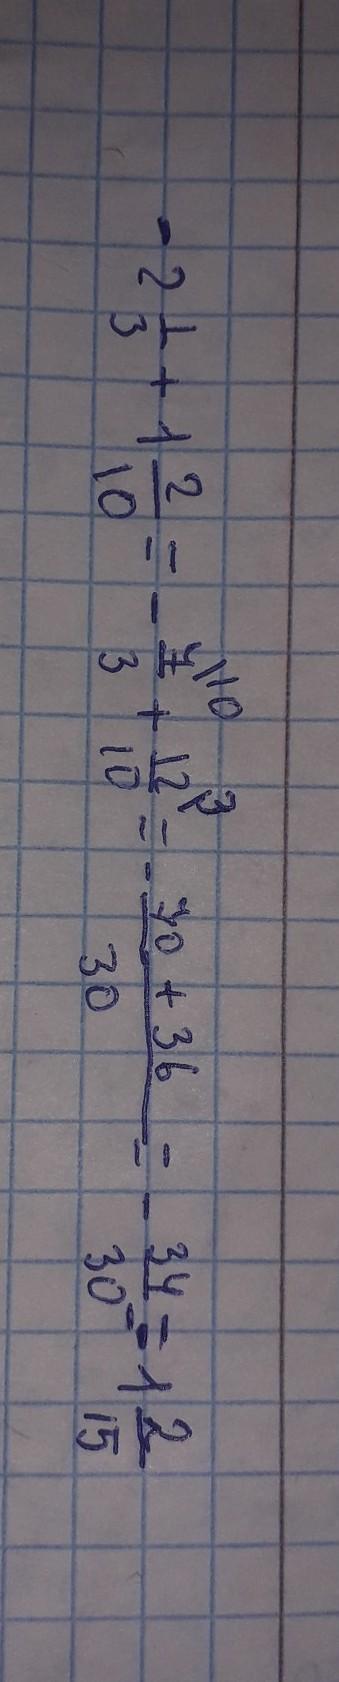 - 2 1/3 + 1 2/10 = - 7\10/3 + 12\3/10 = - 70 + 36/30 = - 34/30 = - 1 2/15